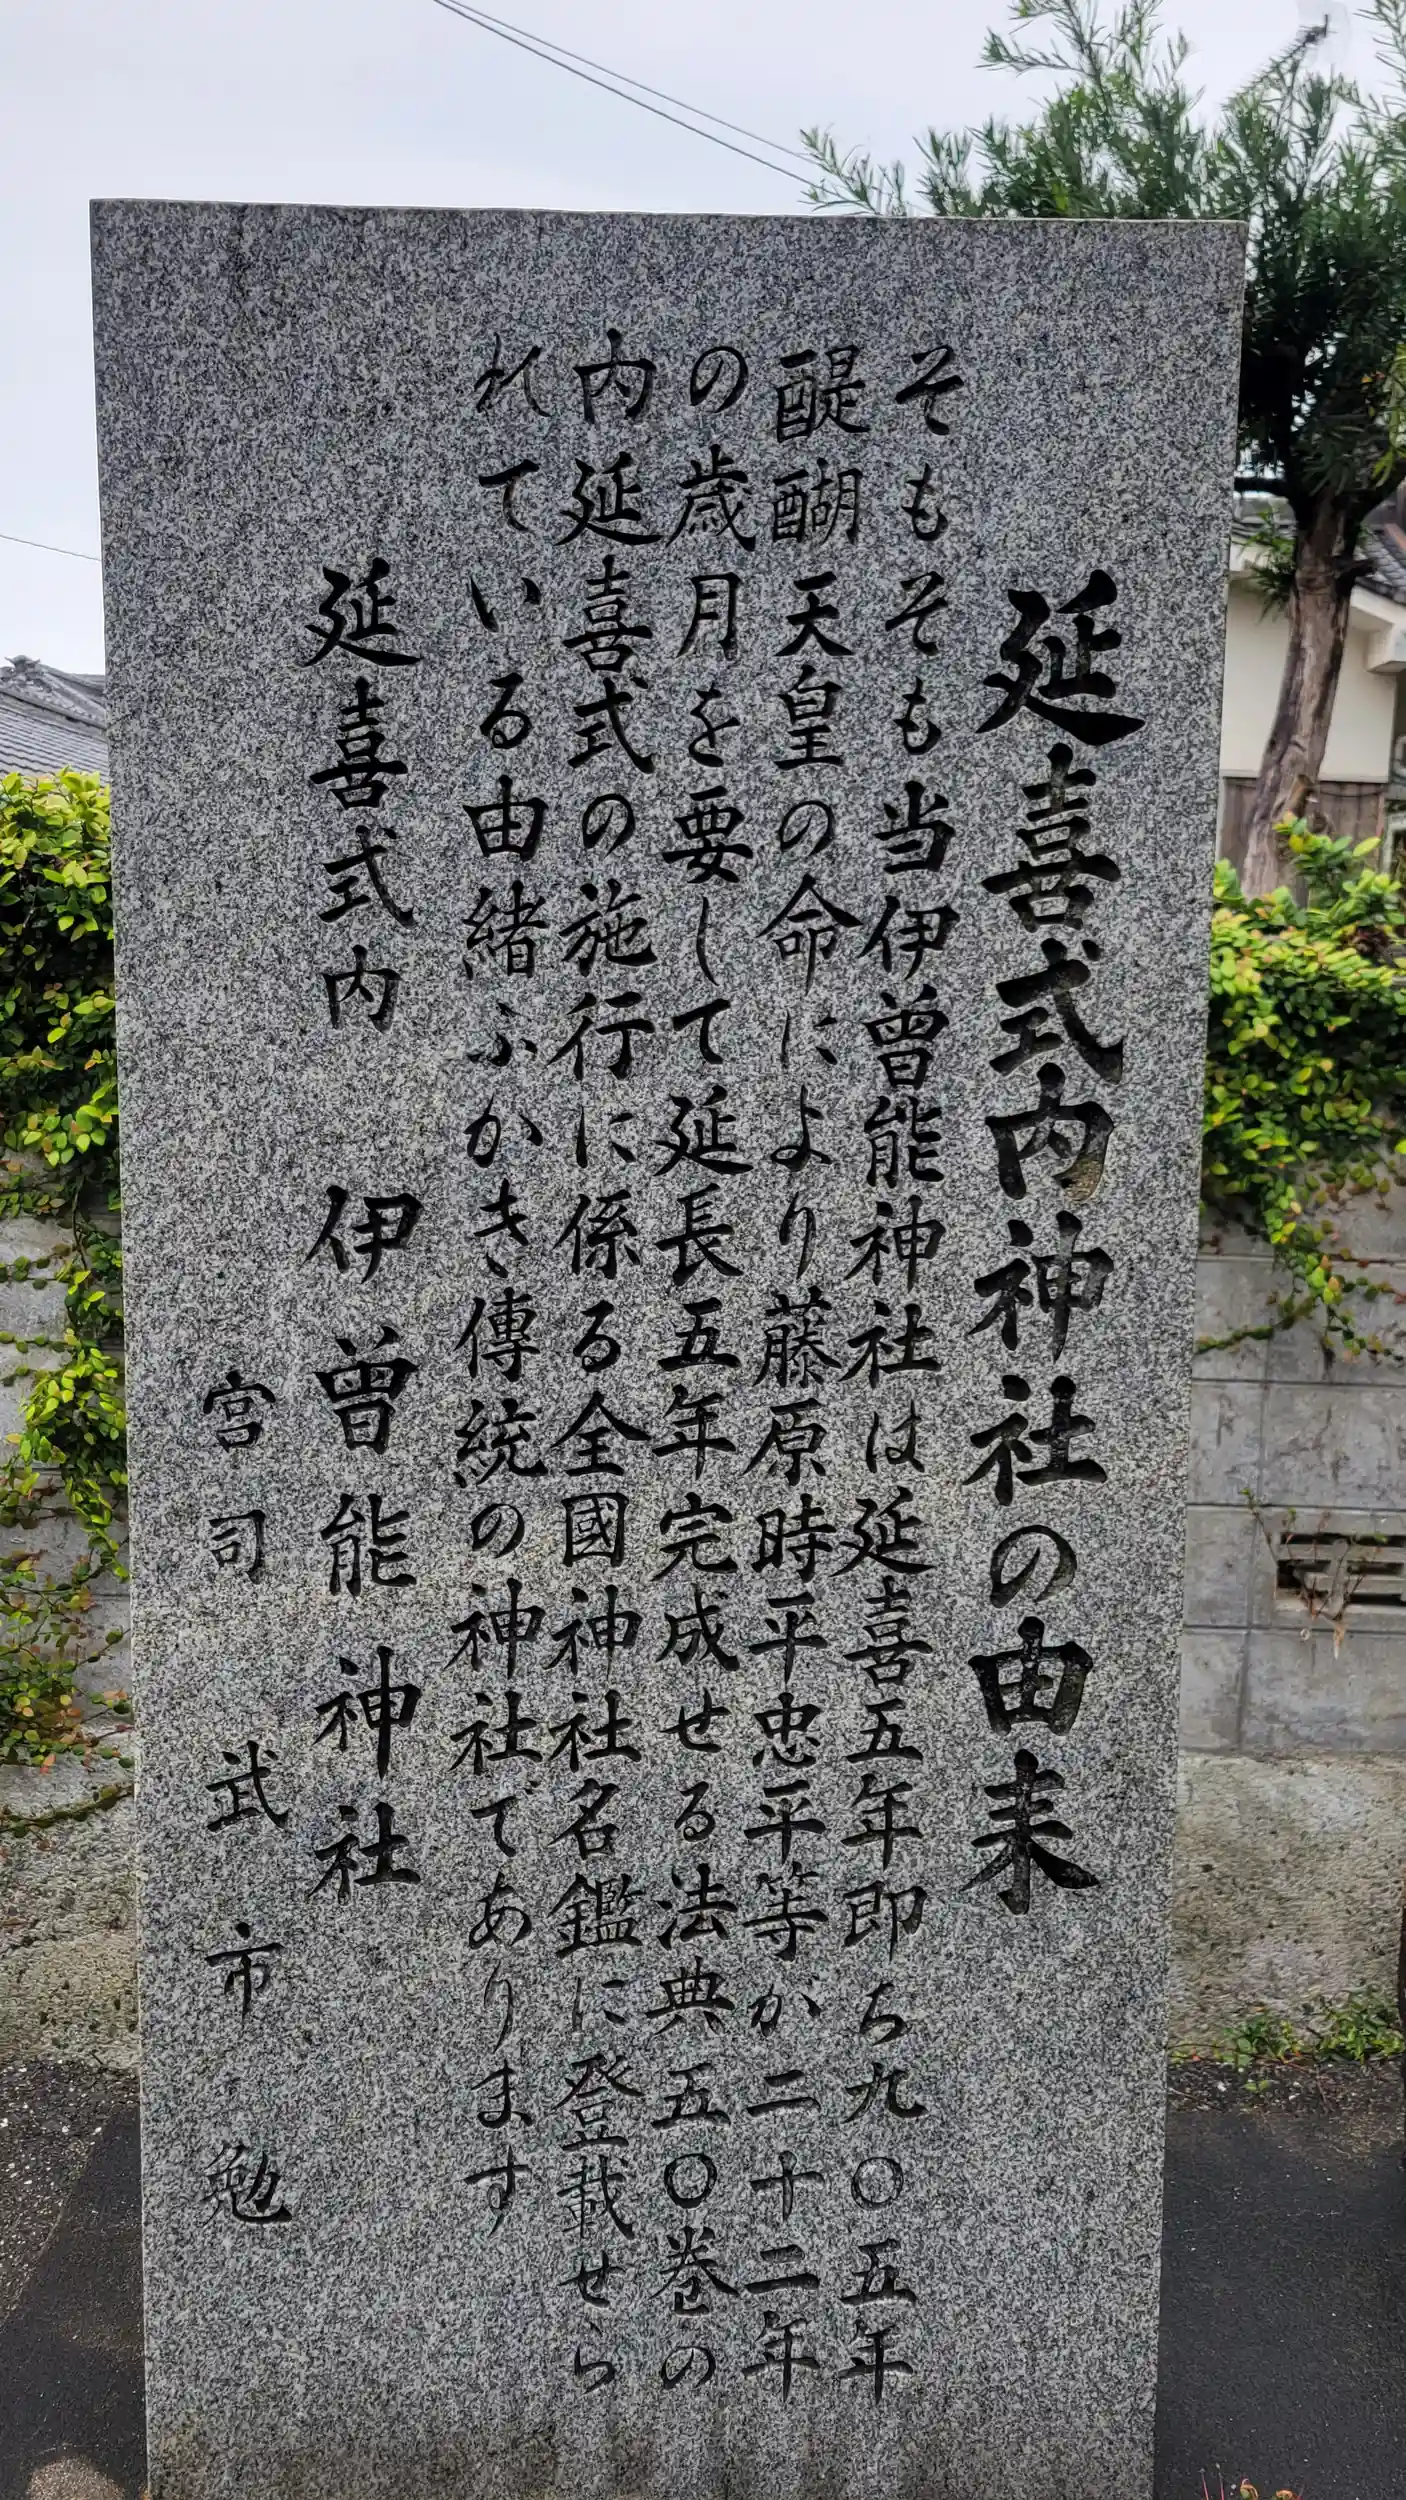 延喜式内神社の由来
そもそも当伊曽能神社は延喜五年即ち九〇五年
醍醐天皇の命により藤原時平忠平等が二十二年
の歳月を要して延長五年完成せる法典五〇巻の
内延喜式の施行に係る全國神社名鑑に登載せら
れている由緒ふかき傳統の神社であります
延喜式内 伊曽能神社
宮司 武市勉